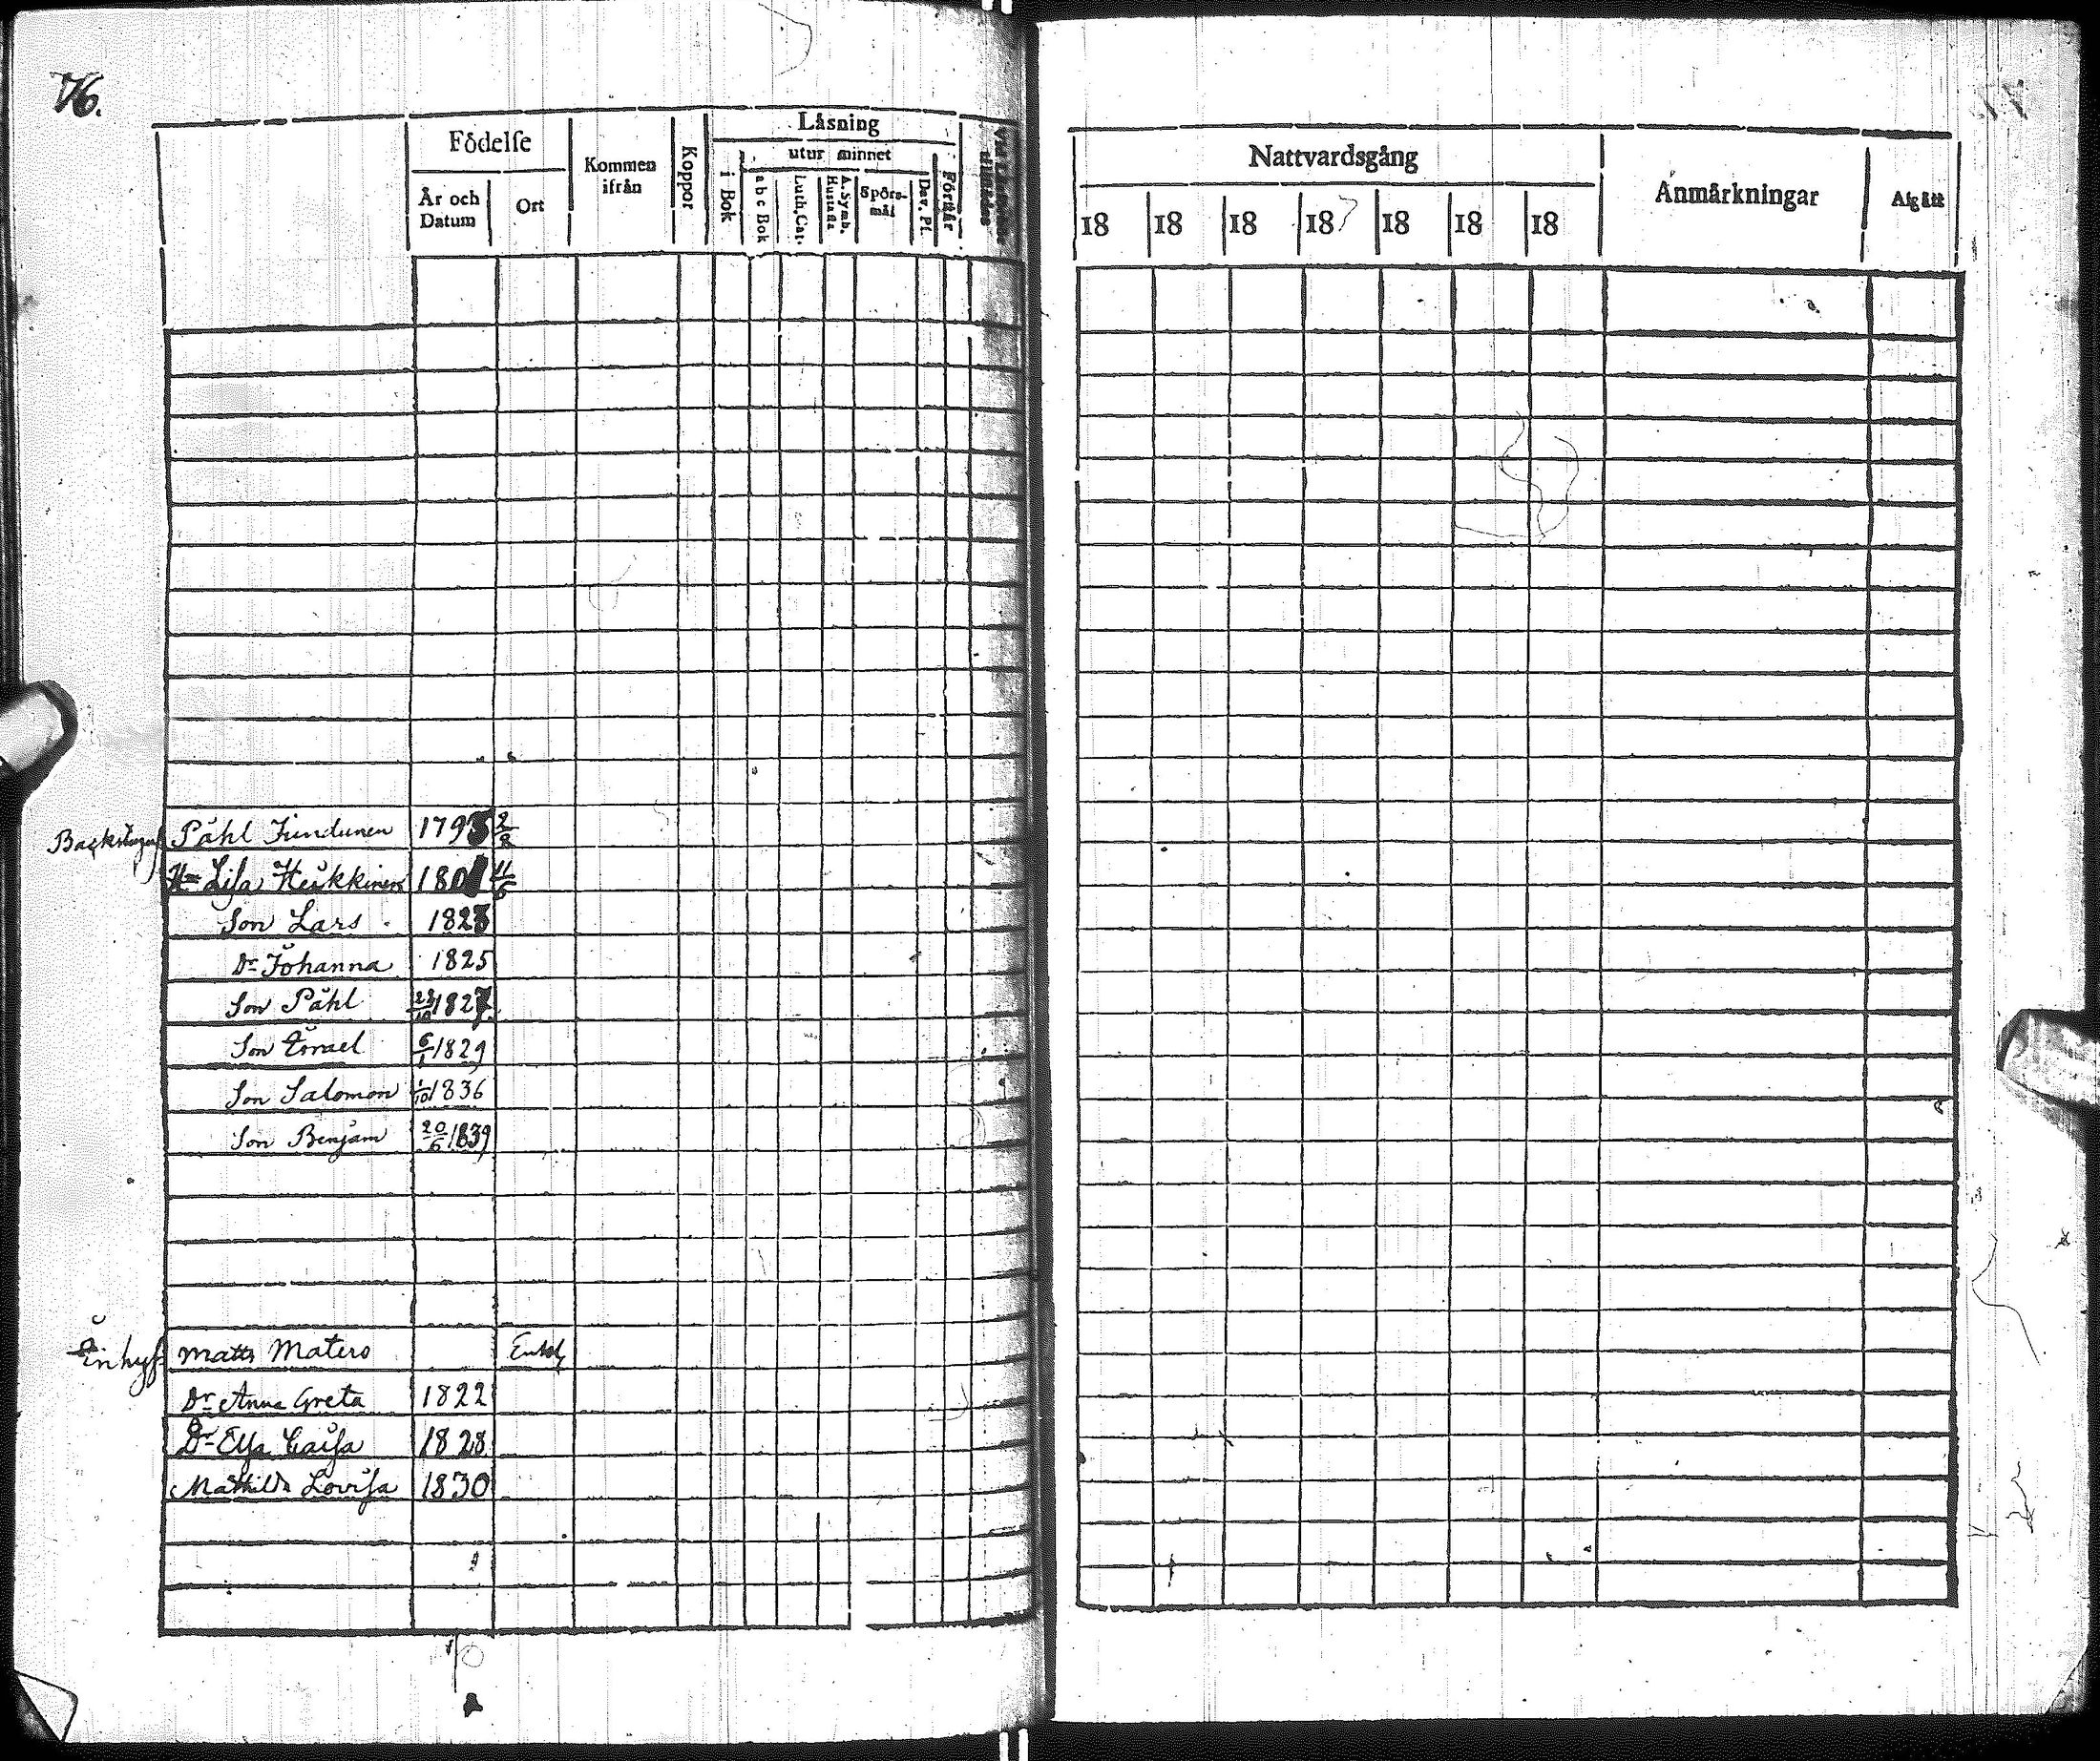 76.
Födelse
Läsning
Nattvardsgång
År och Datum
Ort
Kommen ifrån
Koppor
utur minnet
i Bok
abc Bok
Luth. Cat.
A. Symb. Hustafla
Spörsmål
Dav. Ps.
Förstår
18 18 18 187 18 18 18
Anmärkningar
Afgått
Påhl 1793 2/8
Hu Lisa Heikkinen 1801 11/6
Son Lars 1823
Dr Johanna 1825
Son Påhl 28/10 1827
Son Israel 6/1 1829
Son Salomon 1/10 1836
Son Benjam 20/6 1839
Inhys Matts Matero
Dr Anna Greta 1822
Dr Elsa Caisa 1828
Mathilda Lovisa 1830